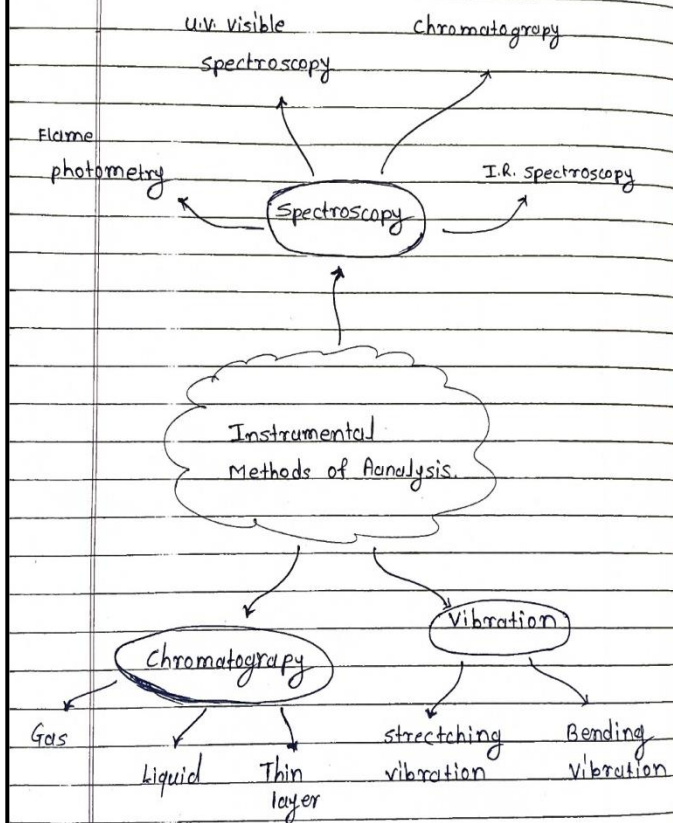 U.V. visible
spectroscopy
Chromatograpy
Flame
photometry
I.R. spectroscopy
Spectroscopy
Instrumental
Methods of Aanalysis.
Chromatograpy
Vibration
Gas
Liquid
Thin
layer
strectching
vibration
Bending
Vibration